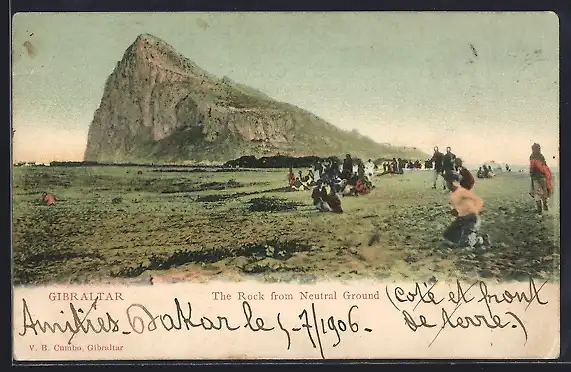 GIBRALTAR The Rock from Neutral Ground (coté et front
Amitiés - Dakar le 5/7/1906 - de terre.)
V. B. Cumbo, Gibraltar